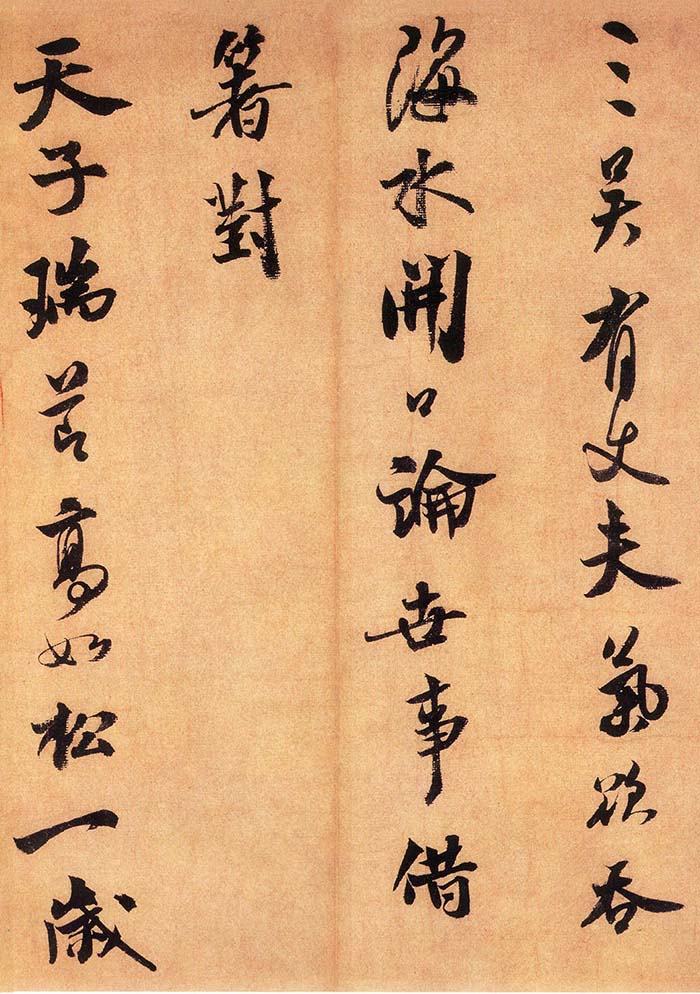 三吳有丈夫氣欲吞
海水開口論世事借
箸對
天子瑞節高如松一歲